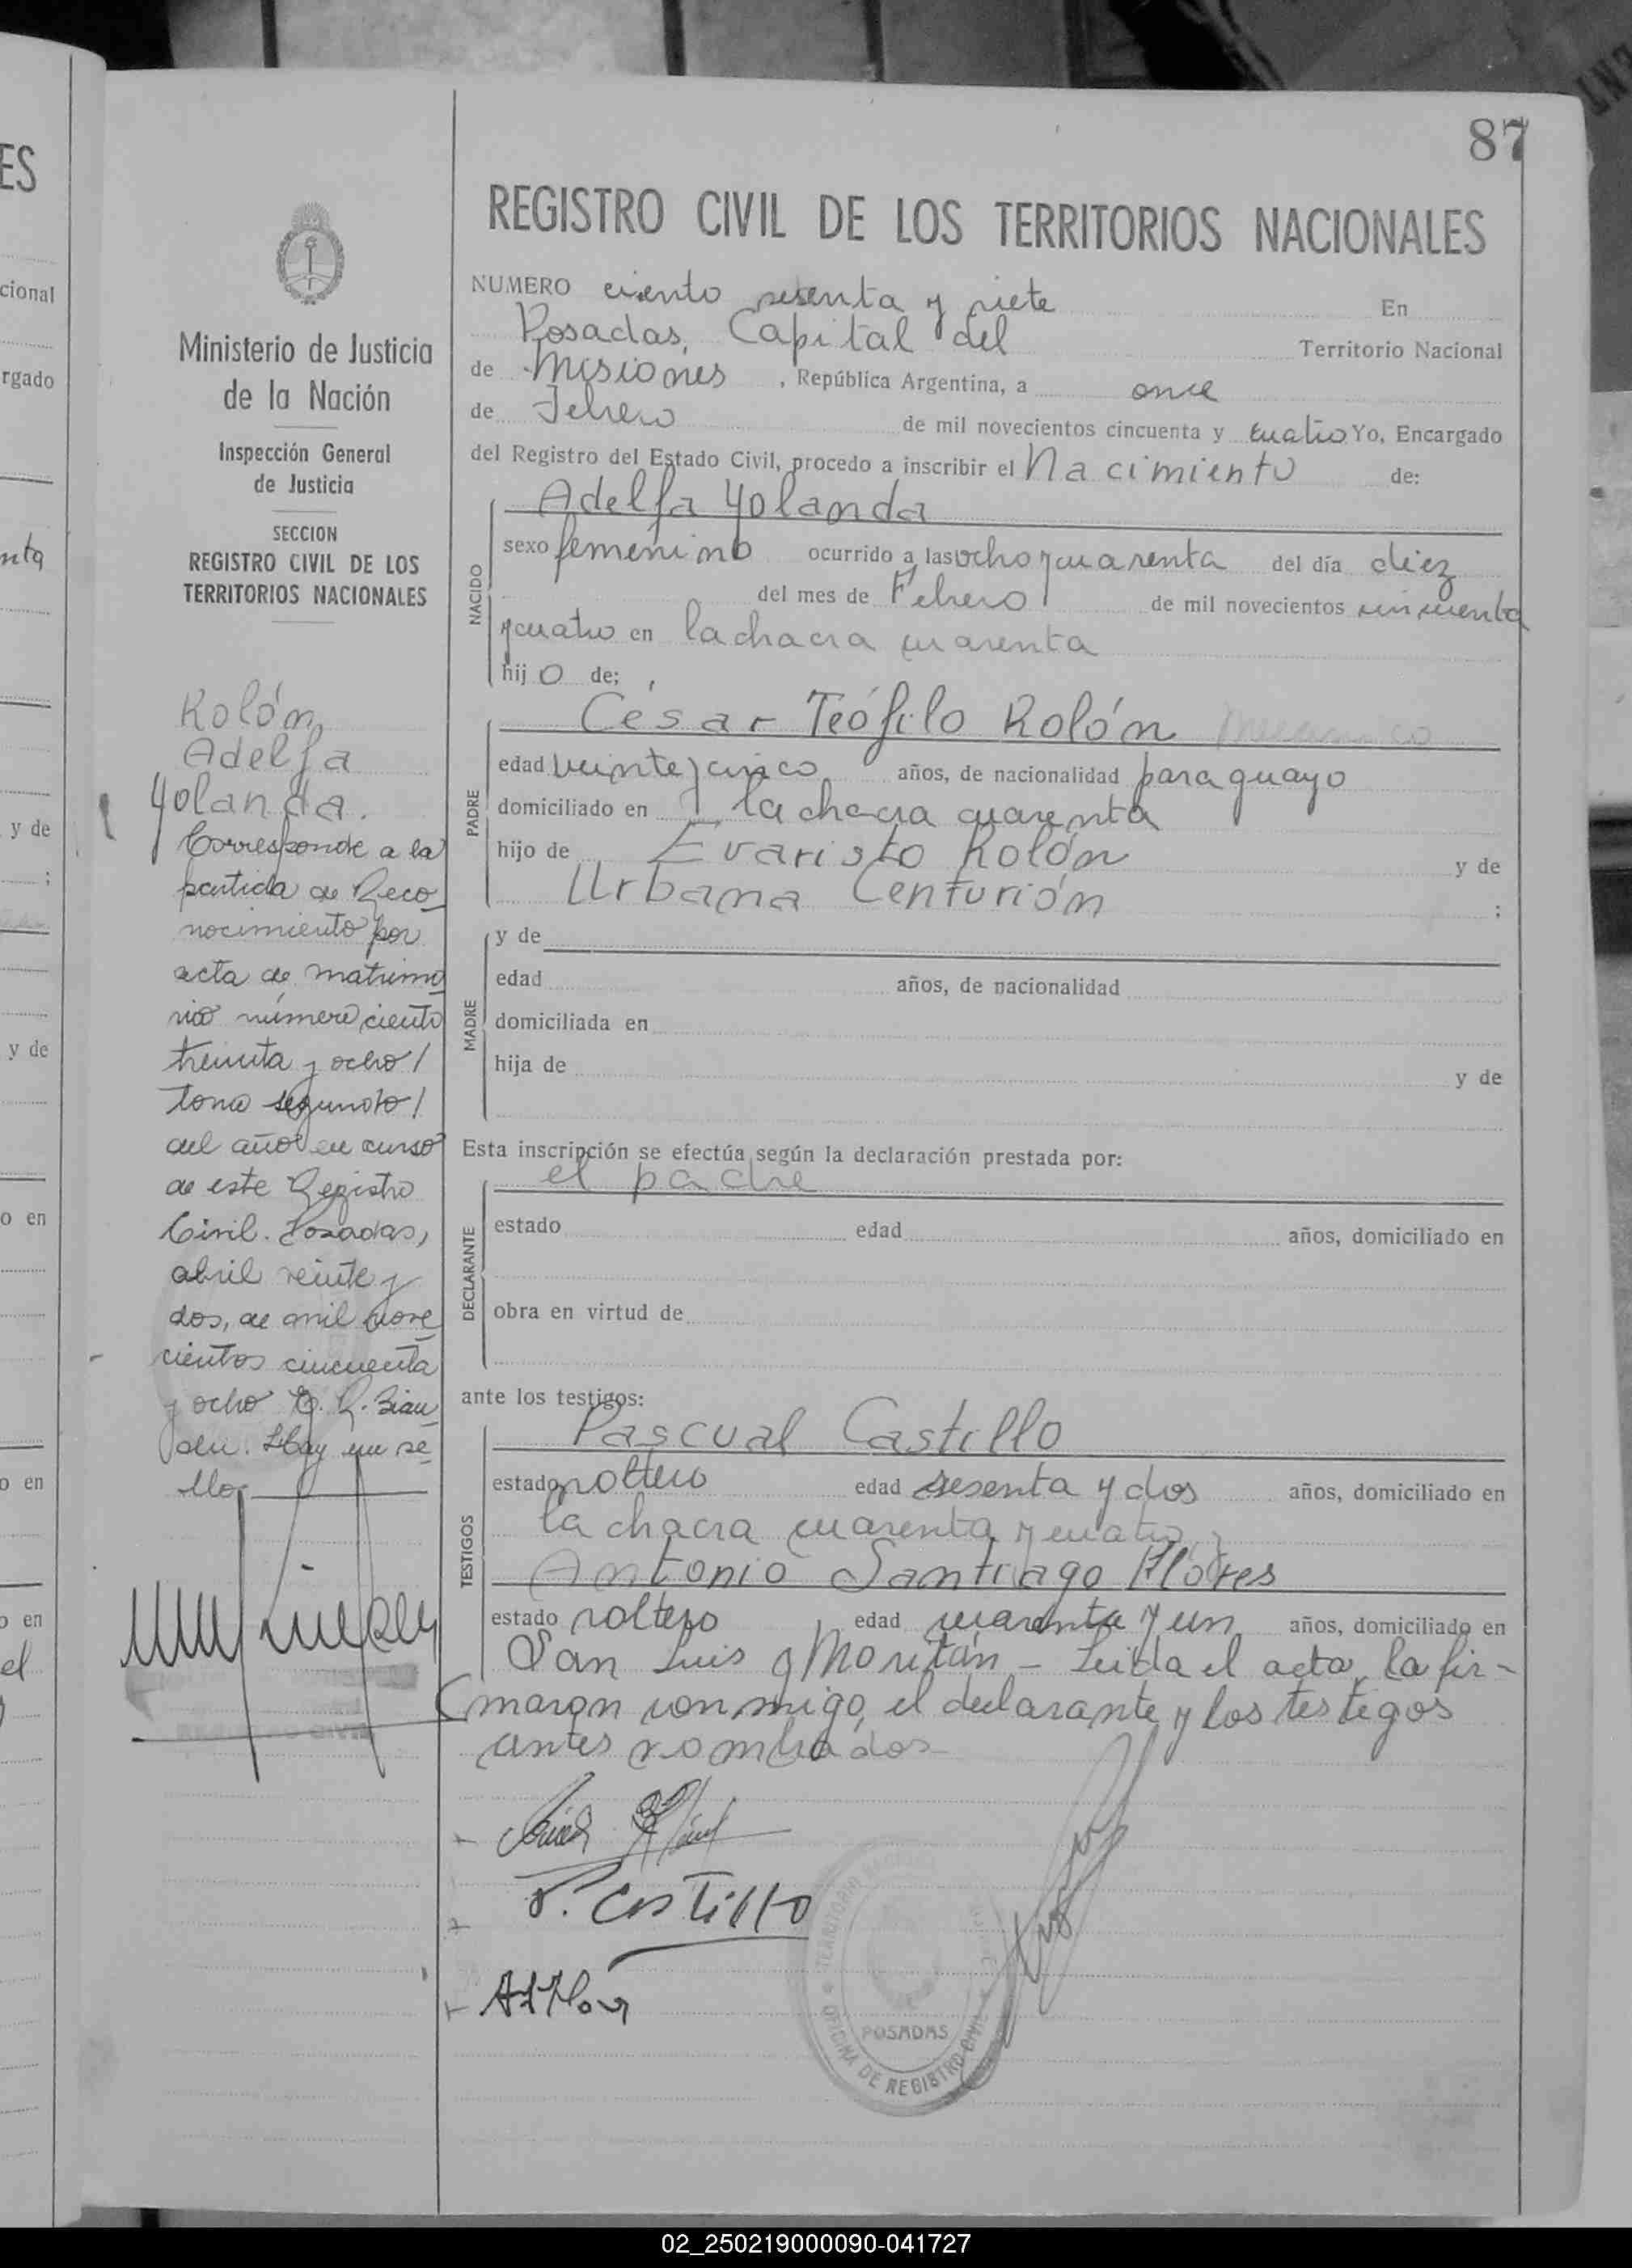 ES
cional
rgado
nta
y de
;
y de
o en
o en
o en
el
87
Ministerio de Justicia
de la Nación
Inspección General
de Justicia
SECCION
REGISTRO CIVIL DE LOS
TERRITORIOS NACIONALES
Rolón,
Adelfa
Yolanda.
Corresponde a la
partida de Reco-
nocimiento por
acta de matrimo
nio número ciento
treinta y ocho/
tomo segundo/
del año en curso
de este Registro
Civil. Posadas,
abril veinte y
dos, de mil nove
cientos cincuenta
y ocho
Hay un se-
llo.
REGISTRO CIVIL DE LOS TERRITORIOS NACIONALES
NUMERO ciento sesenta y siete En
Posadas, Capital del Territorio Nacional
de Misiones, República Argentina, a once
de Febrero de mil novecientos cincuenta y cuatro Yo, Encargado
del Registro del Estado Civil, procedo a inscribir el Nacimiento de:
NACIDO
Adelfa Yolanda
sexo femenino ocurrido a las ocho y cuarenta del día diez
del mes de Febrero de mil novecientos cincuenta
y cuatro en la chacra cuarenta
hijo de;
PADRE
César Teófilo Rolón
edad veinte y cinco años, de nacionalidad paraguayo
domiciliado en la chacra cuarenta
hijo de Evaristo Rolón y de
Urbana Centurión ;
MADRE
y de
edad años, de nacionalidad
domiciliada en
hija de y de
Esta inscripción se efectúa según la declaración prestada por:
DECLARANTE
el padre
estado edad años, domiciliado en
obra en virtud de
ante los testigos:
TESTIGOS
Pascual Castillo
estado soltero edad sesenta y dos años, domiciliado en
la chacra cuarenta y cuatro y
Antonio Santiago Flores
estado soltero edad cuarenta y un años, domiciliado en
San Luis y Moritán - Leída el acta, la fir-
maron conmigo, el declarante y los testigos
antes nombrados
P. Castillo
POSADAS
OFICINA DE REGISTRO CIVIL
02_250219000090-041727